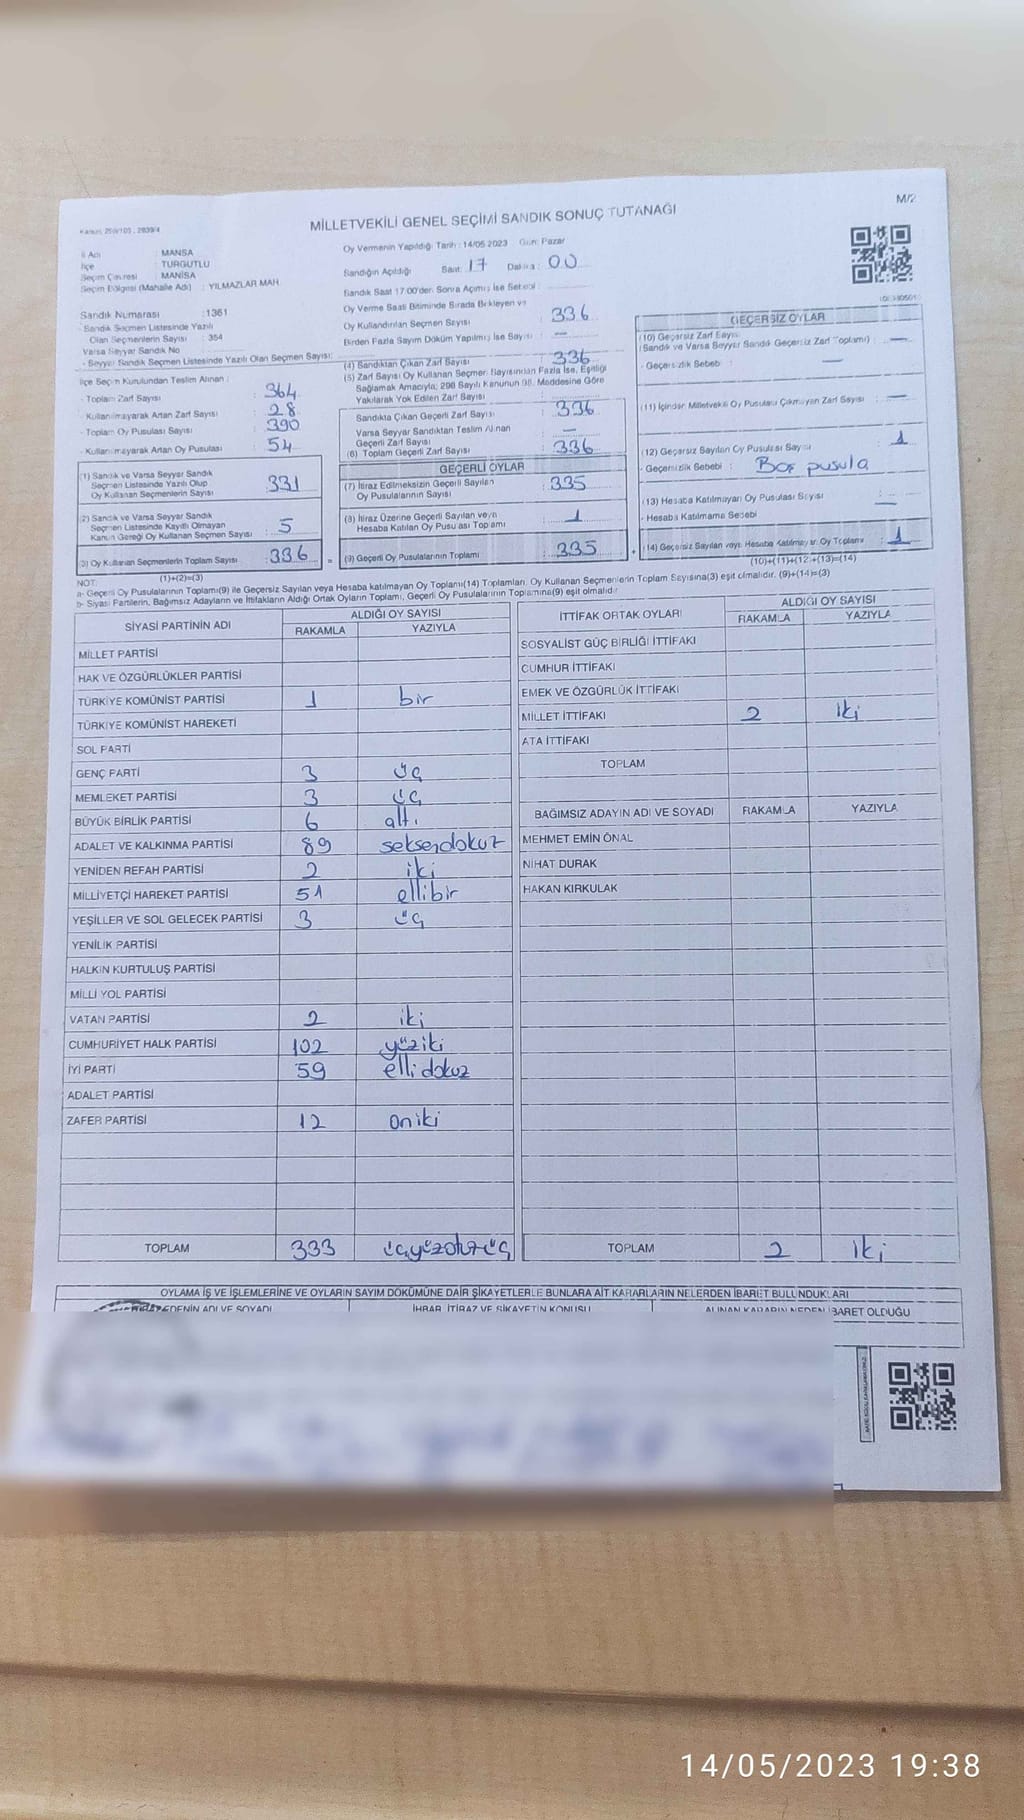 MİLLETVEKİLİ GENEL SEÇİMİ SANDIK SONUÇ TUTANAĞI
M/2
İl Adı : MANİSA
İlçe : TURGUTLU
Seçim Çevresi : MANİSA
Seçim Bölgesi (Mahalle Adı) : YILMAZLAR MAH.
Sandık Numarası : 1361
Sandık Seçmen Listesinde Yazılı
Olan Seçmenlerin Sayısı : 354
Varsa Seyyar Sandık No
- Seyyar Sandık Seçmen Listesinde Yazılı Olan Seçmen Sayısı:
İlçe Seçim Kurulundan Teslim Alınan :
- Toplam Zarf Sayısı : 364
- Kullanılmayarak Artan Zarf Sayısı : 28
- Toplam Oy Pusulası Sayısı : 390
- Kullanılmayarak Artan Oy Pusulası : 54
(1) Sandık ve Varsa Seyyar Sandık
Seçmen Listesinde Yazılı Olup
Oy Kullanan Seçmenlerin Sayısı : 331
(2) Sandık ve Varsa Seyyar Sandık
Seçmen Listesinde Kayıtlı Olmayan
Kanun Gereği Oy Kullanan Seçmen Sayısı : 5
(3) Oy Kullanan Seçmenlerin Toplam Sayısı : 336
(1)+(2)=(3)
Oy Vermenin Yapıldığı Tarih : 14/05/2023 Gün: Pazar
Sandığın Açıldığı Saat: 17 Dakika : 00
Sandık Saat 17.00'den Sonra Açılmış İse Sebebi :
Oy Verme Saati Bitiminde Sırada Bekleyen ve
Oy Kullandırılan Seçmen Sayısı : 336
Birden Fazla Sayım Döküm Yapılmış İse Sayısı : —
(4) Sandıktan Çıkan Zarf Sayısı : 336
(5) Zarf Sayısı Oy Kullanan Seçmen Sayısından Fazla İse, Eşitliği
Sağlamak Amacıyla; 298 Sayılı Kanunun 98. Maddesine Göre
Yakılarak Yok Edilen Zarf Sayısı :
Sandıkta Çıkan Geçerli Zarf Sayısı : 336
Varsa Seyyar Sandıktan Teslim Alınan
Geçerli Zarf Sayısı : —
(6) Toplam Geçerli Zarf Sayısı : 336
GEÇERLİ OYLAR
(7) İtiraz Edilmeksizin Geçerli Sayılan
Oy Pusulalarının Sayısı : 335
(8) İtiraz Üzerine Geçerli Sayılan veya
Hesaba Katılan Oy Pusulası Toplamı : 1
(9) Geçerli Oy Pusulalarının Toplamı : 335
GEÇERSİZ OYLAR
(10) Geçersiz Zarf Sayısı
(Sandık ve Varsa Seyyar Sandık Geçersiz Zarf Toplamı) : —
- Geçersizlik Sebebi : —
(11) İçinden Milletvekili Oy Pusulası Çıkmayan Zarf Sayısı : —
(12) Geçersiz Sayılan Oy Pusulası Sayısı : 1
- Geçersizlik Sebebi : Boş pusula
(13) Hesaba Katılmayan Oy Pusulası Sayısı —
- Hesaba Katılmama Sebebi
(14) Geçersiz Sayılan veya Hesaba Katılmayan Oy Toplamı : 1
(10)+(11)+(12)+(13)=(14)
NOT:
a- Geçerli Oy Pusulalarının Toplamı(9) ile Geçersiz Sayılan veya Hesaba katılmayan Oy Toplamı(14) Toplamları, Oy Kullanan Seçmenlerin Toplam Sayısına(3) eşit olmalıdır. (9)+(14)=(3)
b- Siyasi Partilerin, Bağımsız Adayların ve İttifakların Aldığı Ortak Oyların Toplamı, Geçerli Oy Pusulalarının Toplamına(9) eşit olmalıdır
SİYASİ PARTİNİN ADI ALDIĞI OY SAYISI
RAKAMLA YAZIYLA
MİLLET PARTİSİ
HAK VE ÖZGÜRLÜKLER PARTİSİ
TÜRKİYE KOMÜNİST PARTİSİ 1 bir
TÜRKİYE KOMÜNİST HAREKETİ
SOL PARTİ
GENÇ PARTİ 3 üç
MEMLEKET PARTİSİ 3 üç
BÜYÜK BİRLİK PARTİSİ 6 altı
ADALET VE KALKINMA PARTİSİ 89 seksendokuz
YENİDEN REFAH PARTİSİ 2 iki
MİLLİYETÇİ HAREKET PARTİSİ 51 ellibir
YEŞİLLER VE SOL GELECEK PARTİSİ 3 üç
YENİLİK PARTİSİ
HALKIN KURTULUŞ PARTİSİ
MİLLİ YOL PARTİSİ
VATAN PARTİSİ 2 iki
CUMHURİYET HALK PARTİSİ 102 yüziki
İYİ PARTİ 59 ellidokuz
ADALET PARTİSİ
ZAFER PARTİSİ 12 oniki
TOPLAM 333 üçyüzotuzüç
İTTİFAK ORTAK OYLARI ALDIĞI OY SAYISI
RAKAMLA YAZIYLA
SOSYALİST GÜÇ BİRLİĞİ İTTİFAKI
CUMHUR İTTİFAKI
EMEK VE ÖZGÜRLÜK İTTİFAKI
MİLLET İTTİFAKI 2 iki
ATA İTTİFAKI
TOPLAM
BAĞIMSIZ ADAYIN ADI VE SOYADI RAKAMLA YAZIYLA
MEHMET EMİN ÖNAL
NİHAT DURAK
HAKAN KIRKULAK
TOPLAM 2 iki
OYLAMA İŞ VE İŞLEMLERİNE VE OYLARIN SAYIM DÖKÜMÜNE DAİR ŞİKAYETLERLE BUNLARA AİT KARARLARIN NELERDEN İBARET BULUNDUKLARI
EDENİN ADI VE SOYADI İHBAR, İTİRAZ VE ŞİKAYETİN KONUSU ALINAN KARARIN NEDEN İBARET OLDUĞU
14/05/2023 19:38